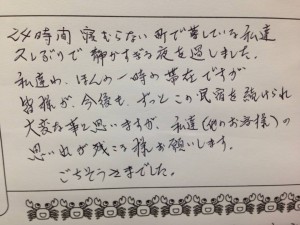 24時間 寝むらない町で暮している私達
久しぶりで静かすぎる夜を過しました。
私達わ、ほんの一時の滞在ですが
皆様が、今後も、ずっとこの民宿を続けられ
大変な事と思いますが、私達(他のお客様)の
思い出が残こる様お願いします。
ごちそうさまでした。